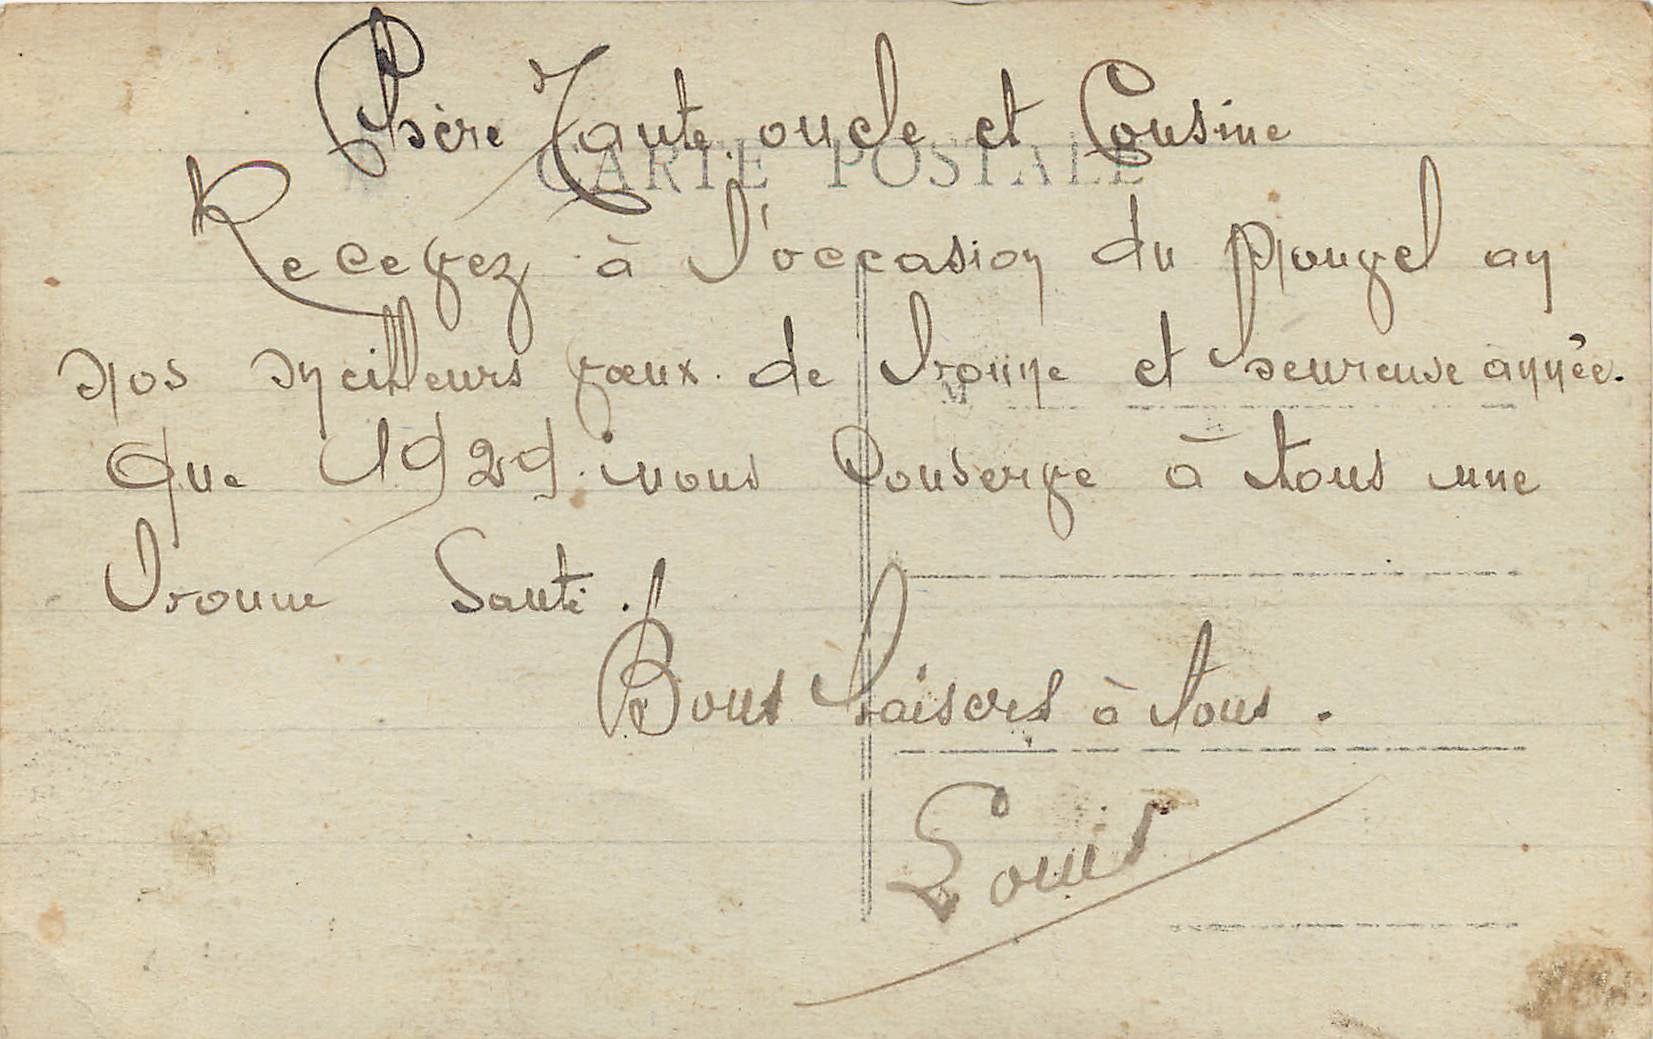 Chère Tante oncle et Cousine
CARTE POSTALE
Recevez à l'occasion du Nouvel an
nos meilleurs vœux de bonne et heureuse année.
Que 1929 nous Conserve à tous une
bonne Santé.
Bons baisers à tous.
Louis